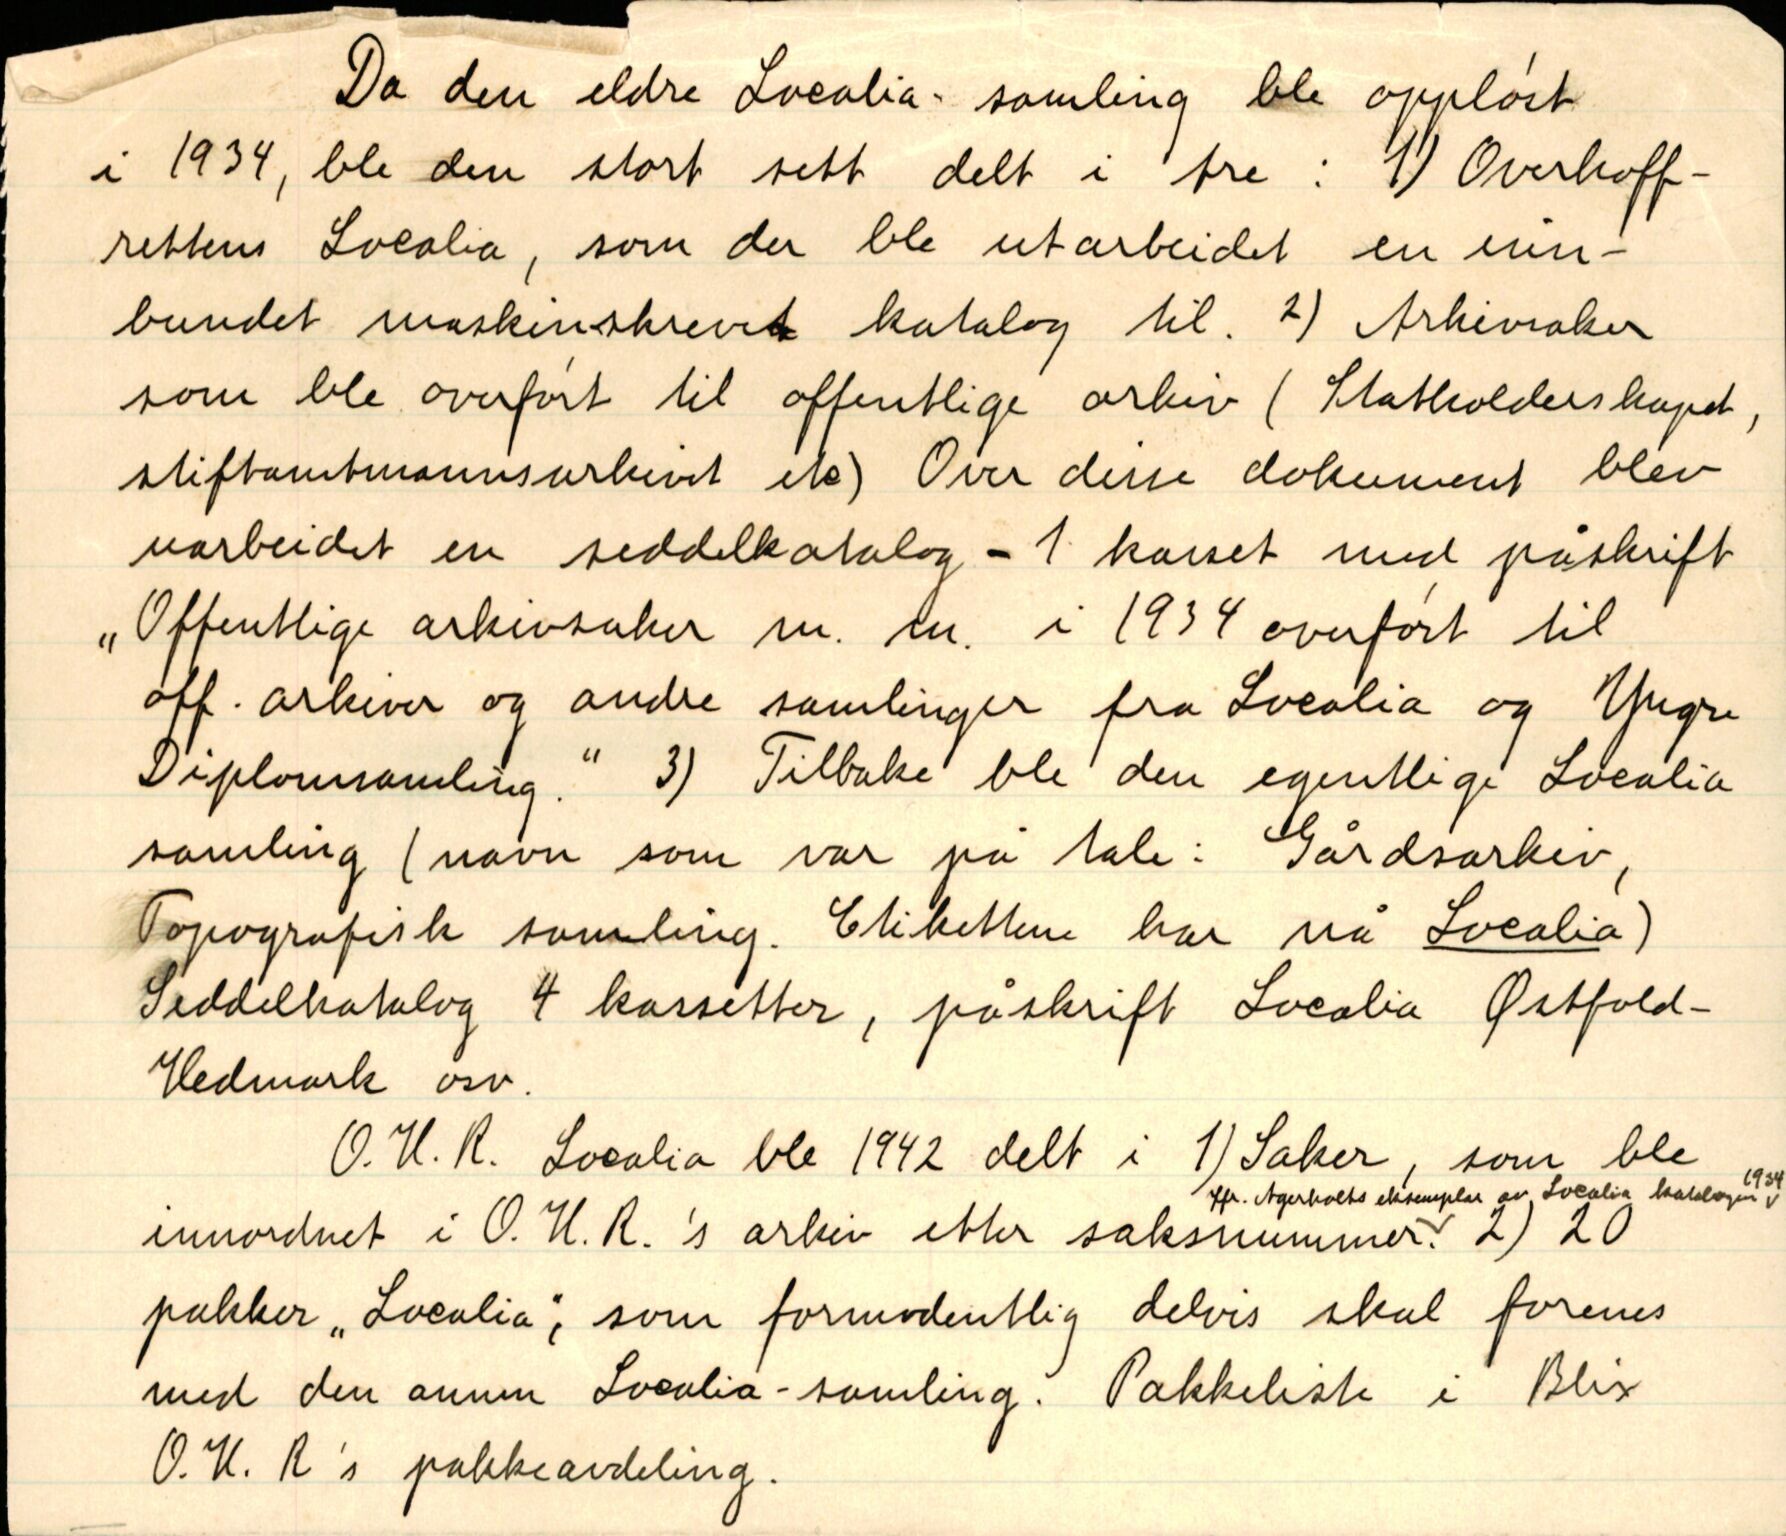 Da den eldre Localia- samling ble oppløst
i 1934, ble den stort sett delt i tre : 1) Overhoff-
rettens Localia, som der ble utarbeidet en inn-
bundet maskinskrevet katalog til. 2) Arkivsaker
som ble overført til offentlige arkiv ( Statholderskapet,
stiftamtmannsarkivet etc) Over disse dokument blev
uarbeidet en seddelkatalog - 1 kasset med påskrift
„Offentlige arkivsaker m. m. i 1934 overført til
off. arkiver og andre samlinger fra Localia og Yngre
Diplomsamling." 3) Tilbake ble den egentlige Localia
samling (navn som var på tale: Gårdsarkiv,
Topografisk samling. Etikettene har nå Localia)
Seddelkatalog 4 kassetter, påskrift Localia Østfold-
Hedmark osv.
O.H.R. Localia ble 1942 delt i 1) Saker, som ble
jfr. Agerholts eksemplar av Localia katalogen 1934
innordnet i O.H.R.'s arkiv etter saksnummer. 2) 20
pakker „Localia", som formodentlig delvis skal forenes
med den annen Localia-samling. Pakkeliste i Blix
O.H.R's pakkeavdeling.